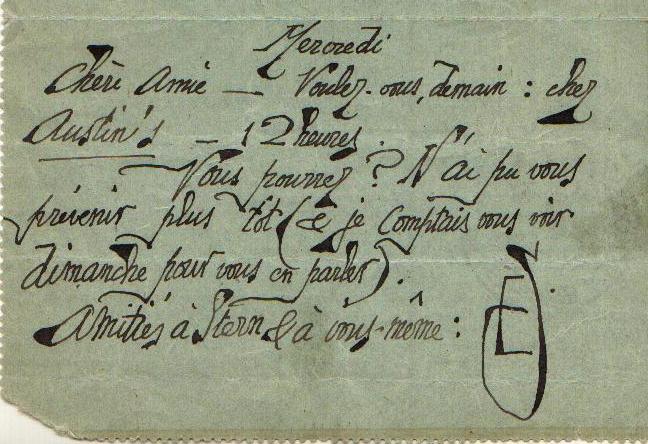 Mercredi
Chère Amie — Voulez-vous, demain : chez
Austin's — 12 heures.
Vous pourrez ? N'ai pu vous
prévenir plus tôt (& je comptais vous voir
dimanche pour vous en parler).
Amitiés à Stern & à vous-même :
E.